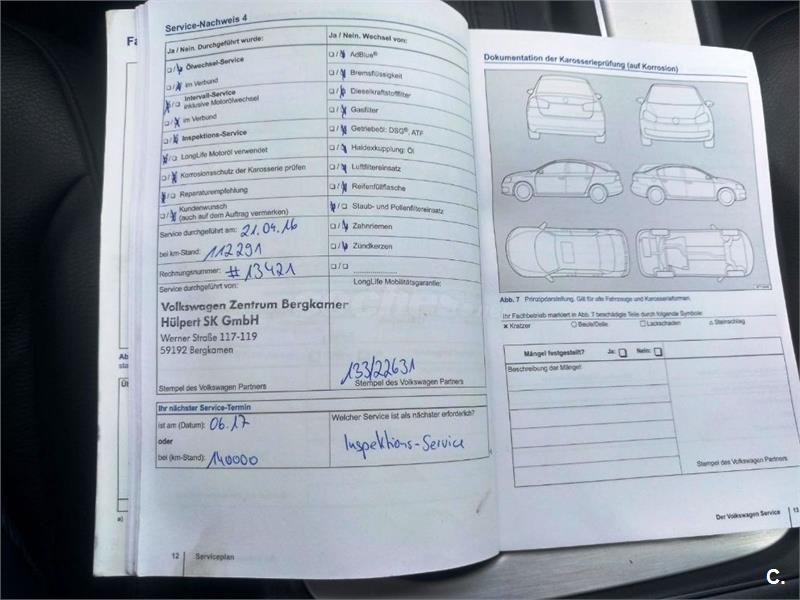 Fa
Service-Nachweis 4
Ja / Nein. Durchgeführt wurde:
Ölwechsel-Service
im Verbund
Intervall-Service
inklusive Motorölwechsel
im Verbund
Inspektions-Service
LongLife Motoröl verwendet
Korrosionsschutz der Karosserie prüfen
Reparaturempfehlung
Kundenwunsch
(auch auf dem Auftrag vermerken)
Service durchgeführt am: 21.04.16
bei km-Stand: 112291
Rechnungsnummer: #13421
Service durchgeführt von:
Volkswagen Zentrum Bergkamen
Hülpert SK GmbH
Werner Straße 117-119
59192 Bergkamen
Stempel des Volkswagen Partners
Ja / Nein. Wechsel von:
AdBlue®
Bremsflüssigkeit
Dieselkraftstofffilter
Gasfilter
Getriebeöl: DSG®, ATF
Haldexkupplung: Öl
Luftfiltereinsatz
Reifenfüllflasche
Staub- und Pollenfiltereinsatz
Zahnriemen
Zündkerzen
LongLife Mobilitätsgarantie:
133/22631
Stempel des Volkswagen Partners
Ihr nächster Service-Termin
ist am (Datum): 06.17
oder
bei (km-Stand): 140000
Welcher Service ist als nächster erforderlich?
Inspektions-Service
12 Serviceplan
Dokumentation der Karosserieprüfung (auf Korrosion)
Abb. 7 Prinzipdarstellung. Gilt für alle Fahrzeuge und Karosserieformen.
Ihr Fachbetrieb markiert in Abb. 7 beschädigte Teile durch folgende Symbole:
x Kratzer ○ Beule/Delle □ Lackschaden △ Steinschlag
Mängel festgestellt? Ja: Nein:
Beschreibung der Mängel:
Stempel des Volkswagen Partners
Der Volkswagen Service 13
C.